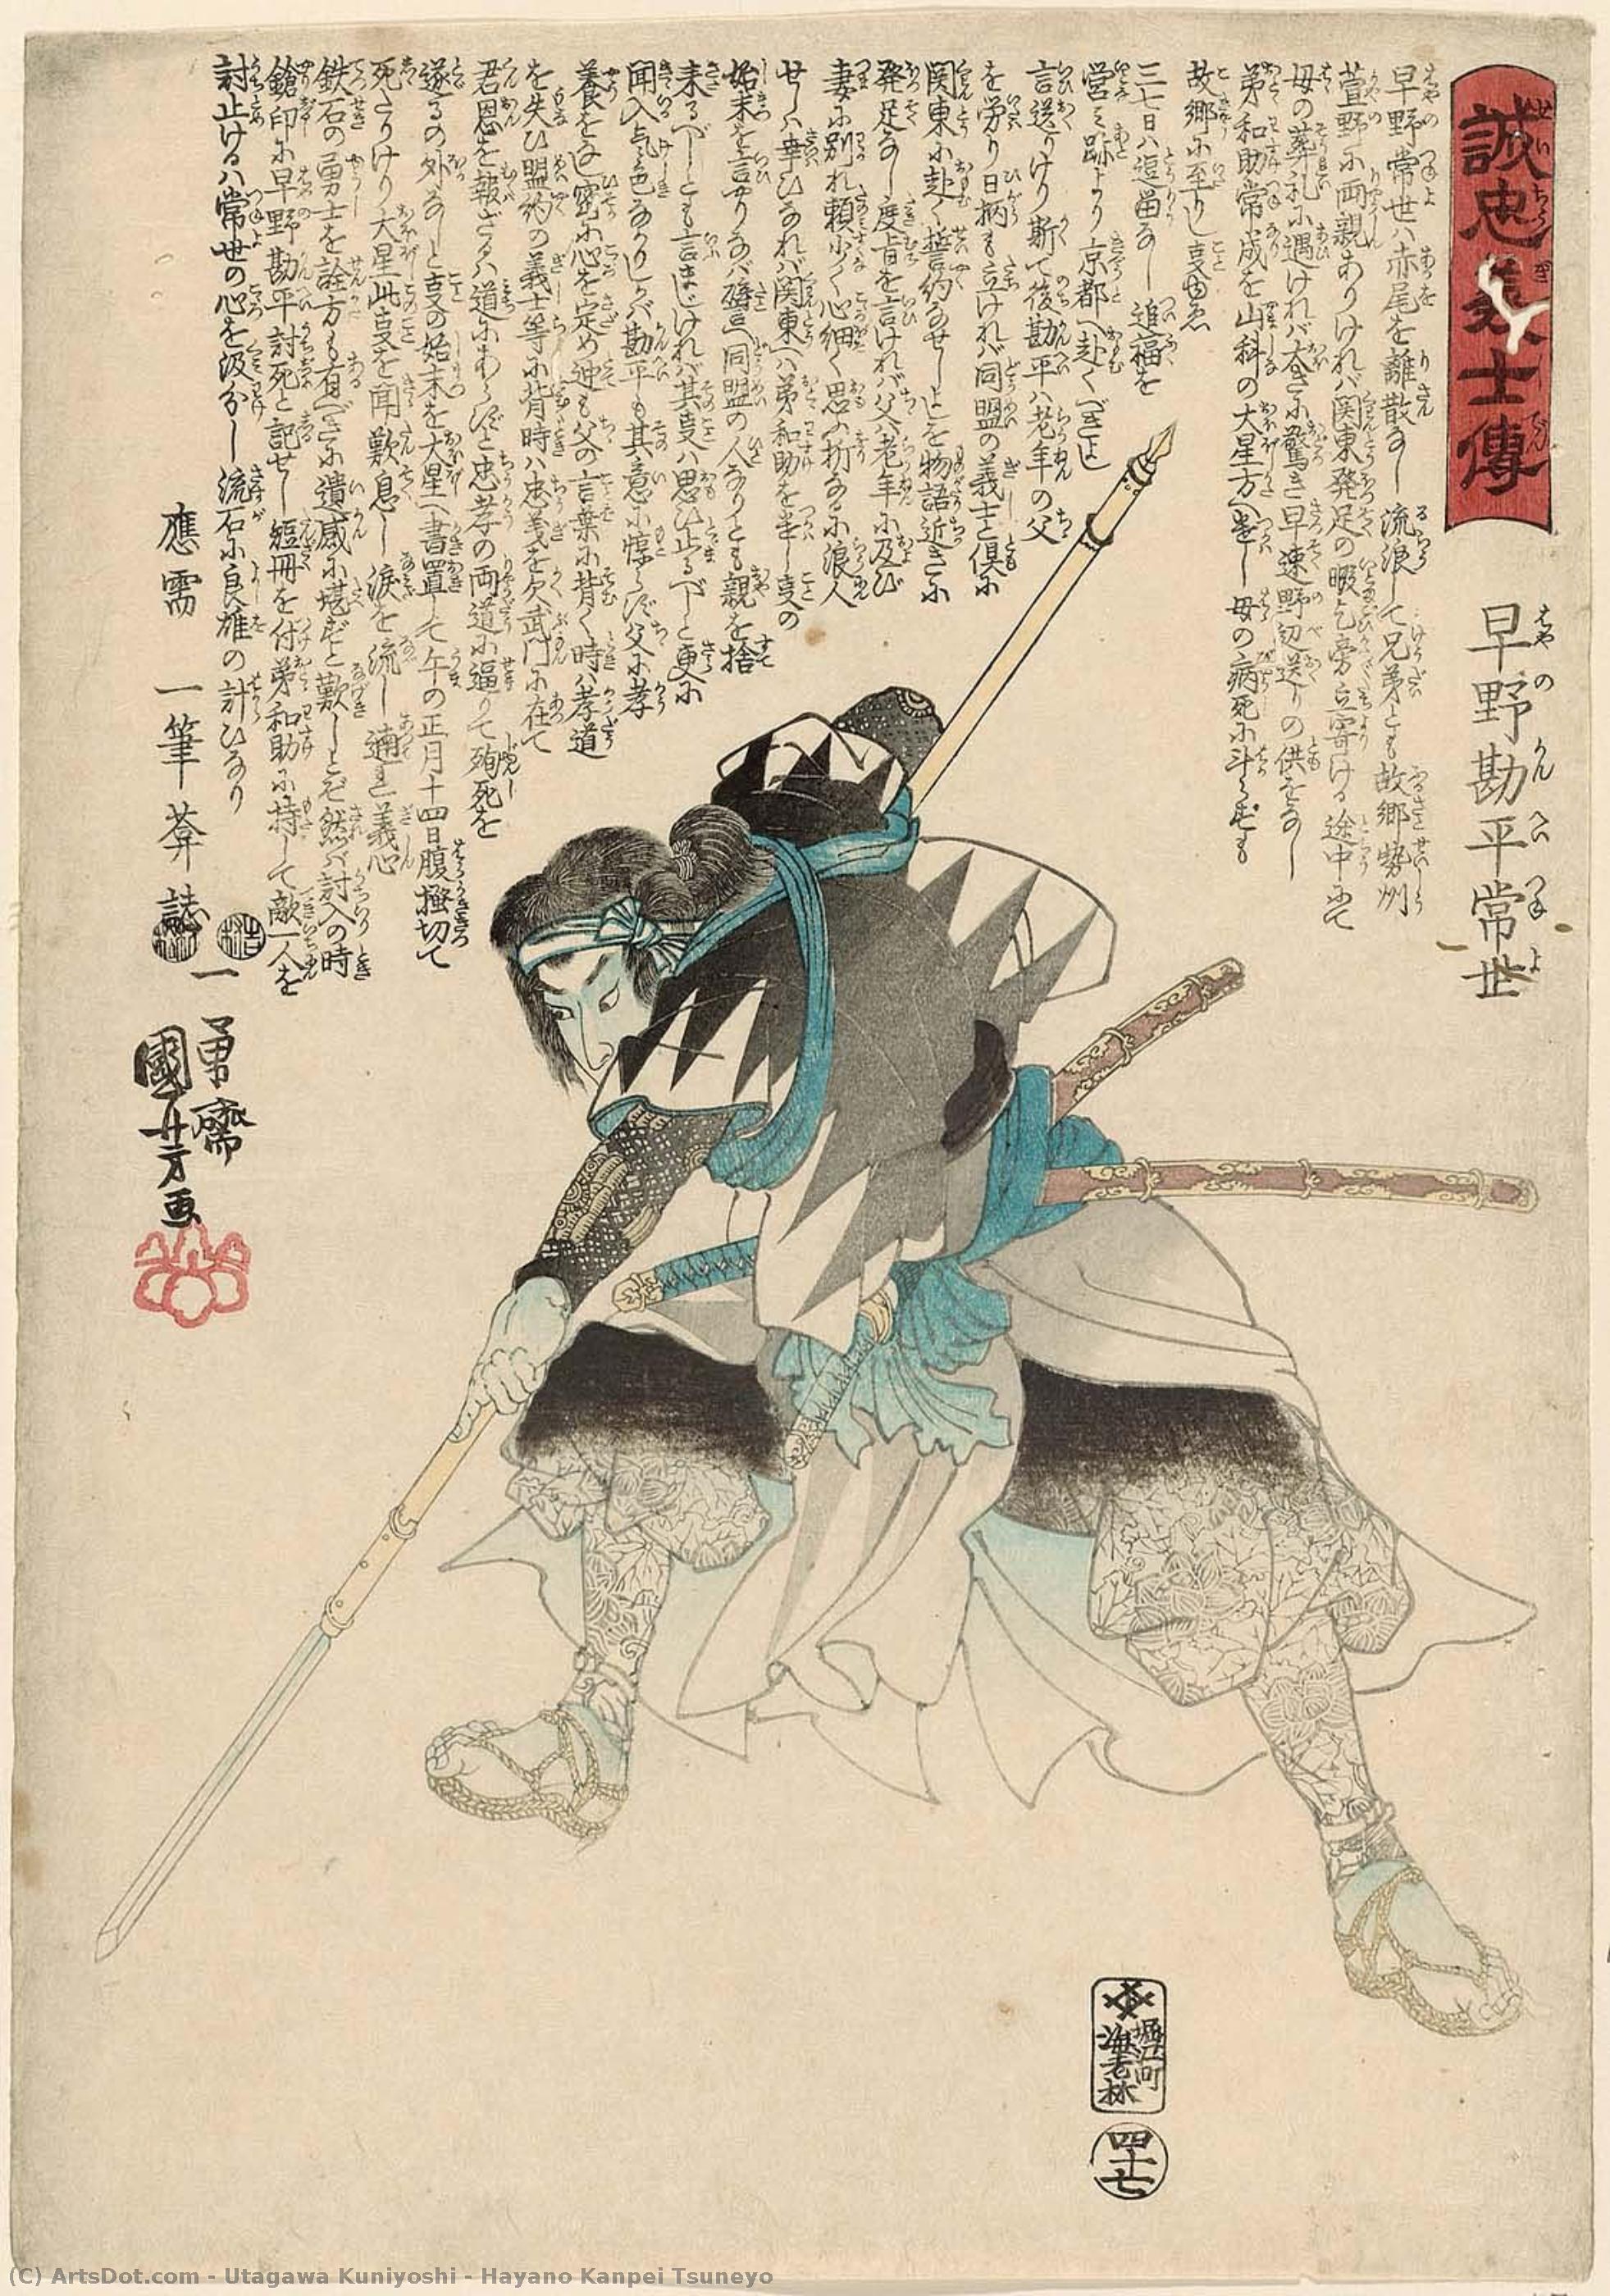 誠忠義士傳
早野勘平常世
早野常世ハ赤尾を離散なし流浪して兄弟とも故郷勢州
萱野に両親ありけれバ関東発足の暇乞旁立寄ける途中にて
母の葬礼に遇けれバ大きに驚き早速野辺送りの供をなし
弟和助常成を山科の大星方へ走し母の病死に斗らずも
故郷に至りし事ゆゑ
三七日ハ逗留なし追福を
営ミ跡より京都へ赴くべきよし
言送りけり斯て後勘平ハ老年の父
を労り日柄も立けれバ同盟の義士と倶に
関東に赴く誓約なせしよしを物語近きに
発足なし度旨を言けれバ父ハ老年に及び
妻に別れ頼少く心細く思ふ折なるに浪人
せしハ幸ひなれバ関東へハ弟和助を走し事の
始末を言やりなバ同盟の人なりとも親を捨
来るべしとも言まじけれバ其事ハ思ひ止るべしと更に
聞入気色なかりしかバ勘平も其意に惇らず父に孝
養をなし密に心を定め迚も父の言葉に背く時ハ孝道
を失ひ盟約の義士等に背時ハ忠義を欠武門に在て
君恩を報ざるハ道にあらずと忠孝の両道に逼りて殉死を
遂るの外なしと事の始末を大星へ書置して午の正月十四日腹掻切て
死たりけり大星此事を聞歎息し涙を流し遖れ義心
鉄石の勇士を詮方も有べきに遺感に堪ずと歎しとぞ然バ討入の時
鎗印に早野勘平討死と記せし短冊を付弟和助に持して敵一人を
討止けるハ常世の心を汲分し流石に良雄の計ひなり
應需
一筆菴誌
一勇齋
國芳画
堀江町
海老林
四十七
(C) ArtsDot.com - Utagawa Kuniyoshi - Hayano Kanpei Tsuneyo